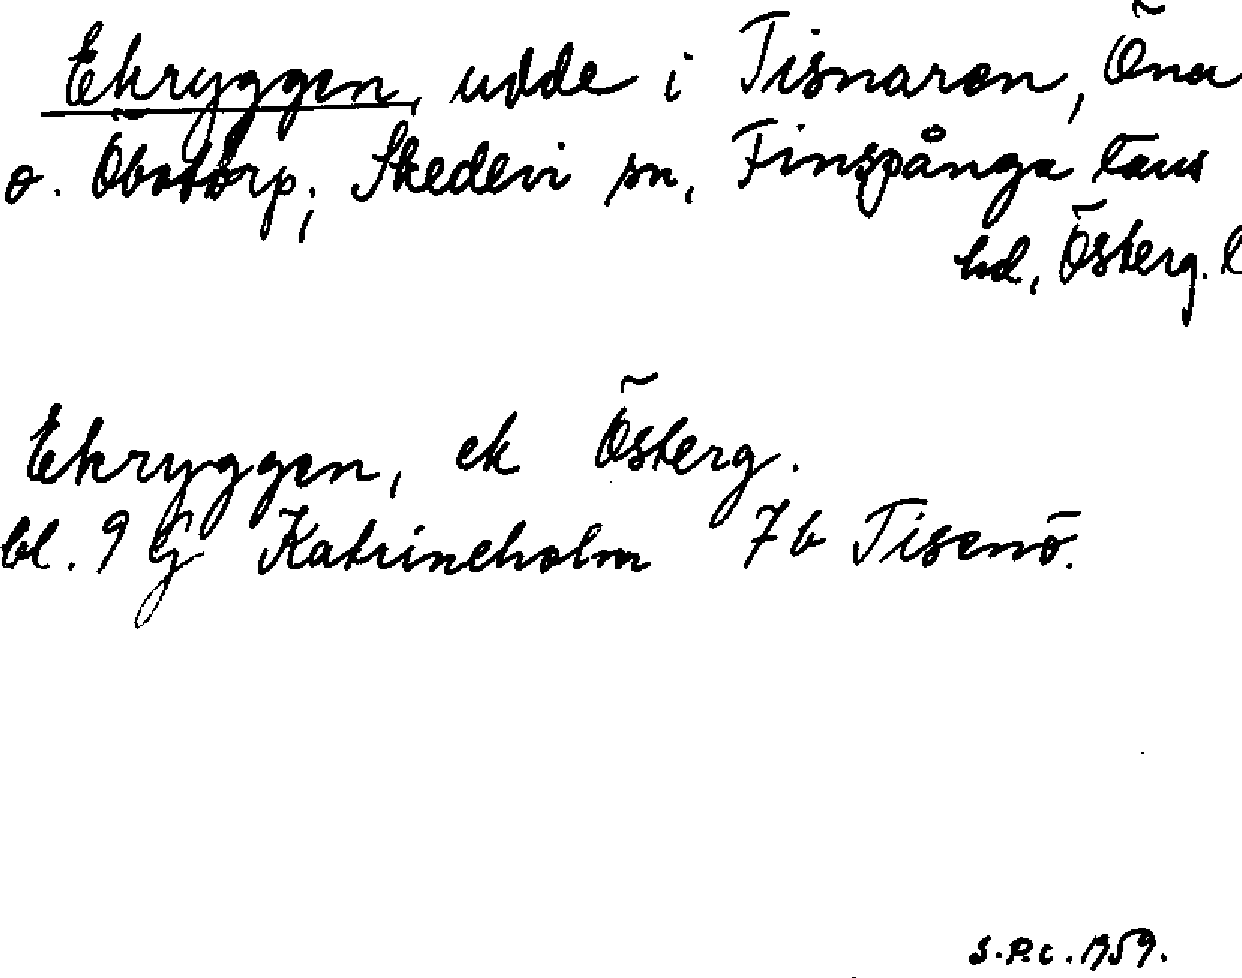 Ekryggen, udde i Tisnaren, Öna
o. Öbotorp, Skedevi sn, Finspånga läns
hd, Österg. l
Ekryggen, ek Österg.
bl. 9 G Katrineholm 7 b Tisenö.
S.P.C. 1959.